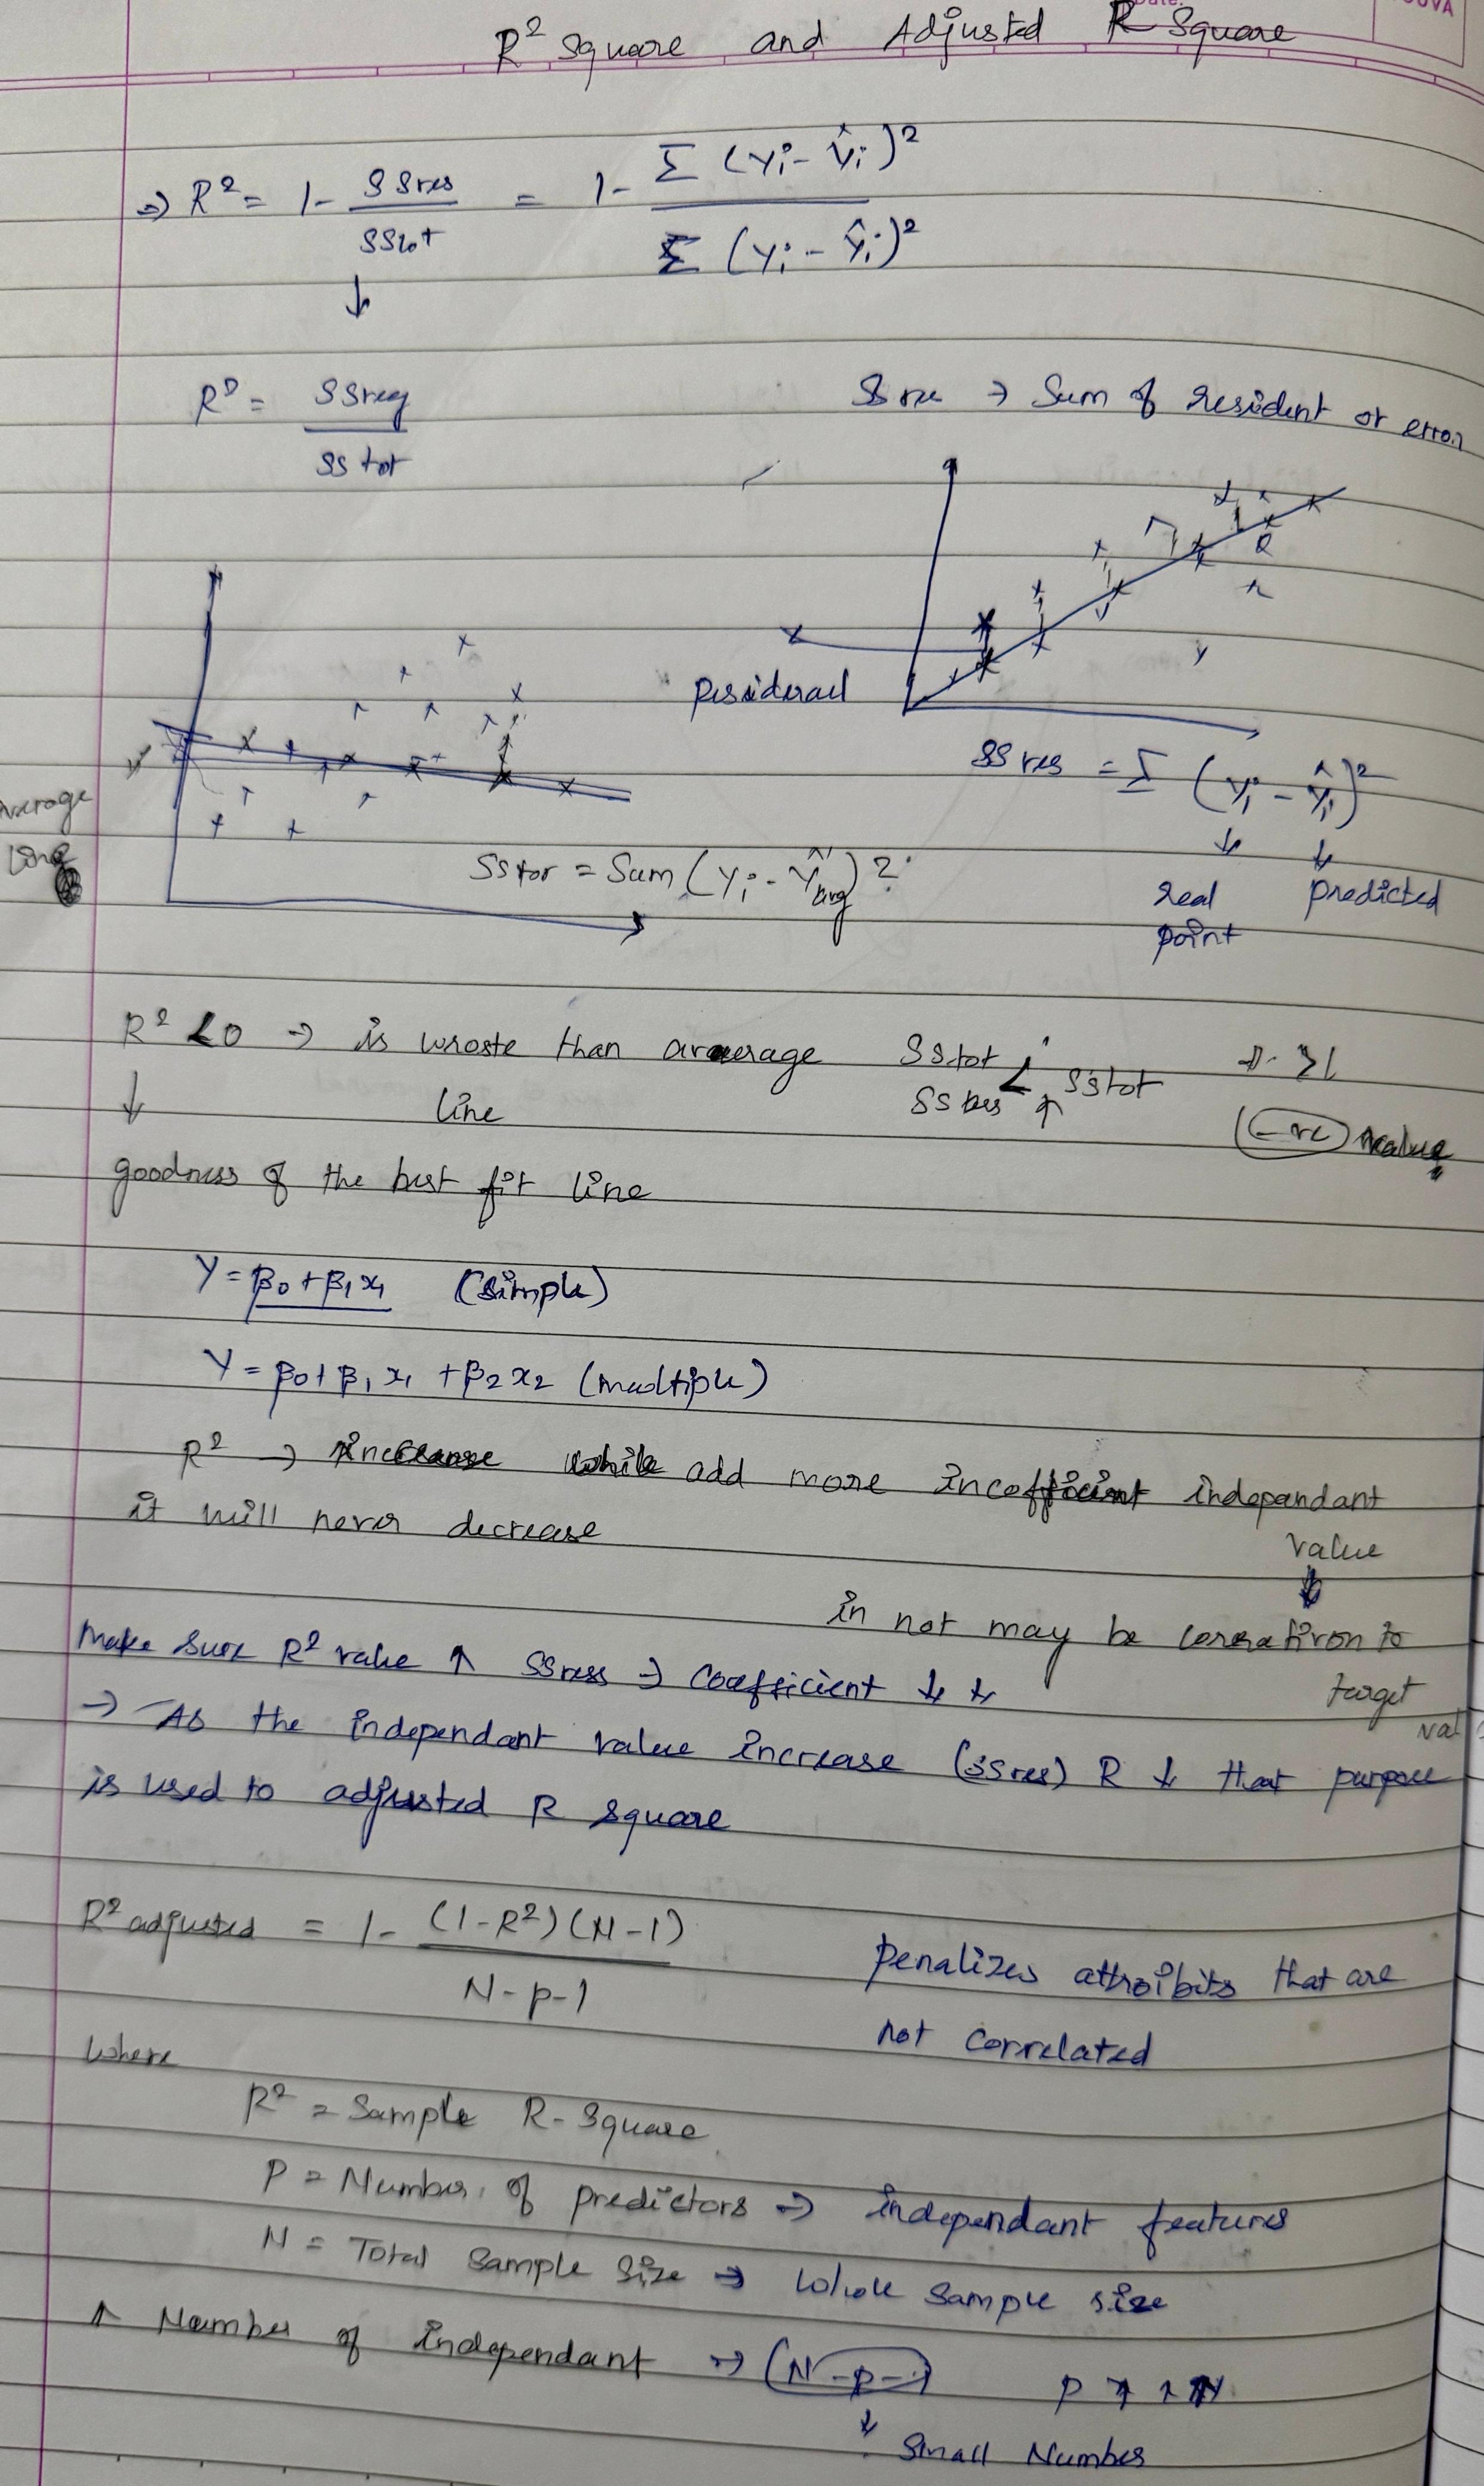 R² Square and Adjusted R Square
⇒ R² = 1 - SSres / SStot = 1 - Σ (yi - ŷi)² / Σ (yi - ŷi)²
↓
R² = SSreg / SStot
SSres → Sum of resident or error
residerael
SSres = Σ (yi - ŷi)²
↓ ↓
real point predicted
Average
line
SStot = Sum (yi - ŷavg)²
R² < 0 → is wroste than average line
SStot
SSres < SStot ↑
>1
(-ve) value
↓
goodness of the best fit line
Y = β0 + β1 x1 (simple)
Y = β0 + β1 x1 + β2 x2 (multiple)
R² → increase while add more incofficient independant value
it will never decrease
↓
in not may be correation to target val
Make sure R² value ↑ SSress → Coefficient ↓ ↓
→ As the independant value increase (SSres) R ↓ that purpose
is used to adjusted R square
R² adjusted = 1 - (1-R²)(N-1) / N-p-1
Penalizes attroibits that are
not correlated
Where
R² = Sample R-Square
P = Number of predictors → independant features
N = Total Sample Size → Whole sample size
↑ Number of independant → (N-p-1) P ↑ ↑
↓
Small Number